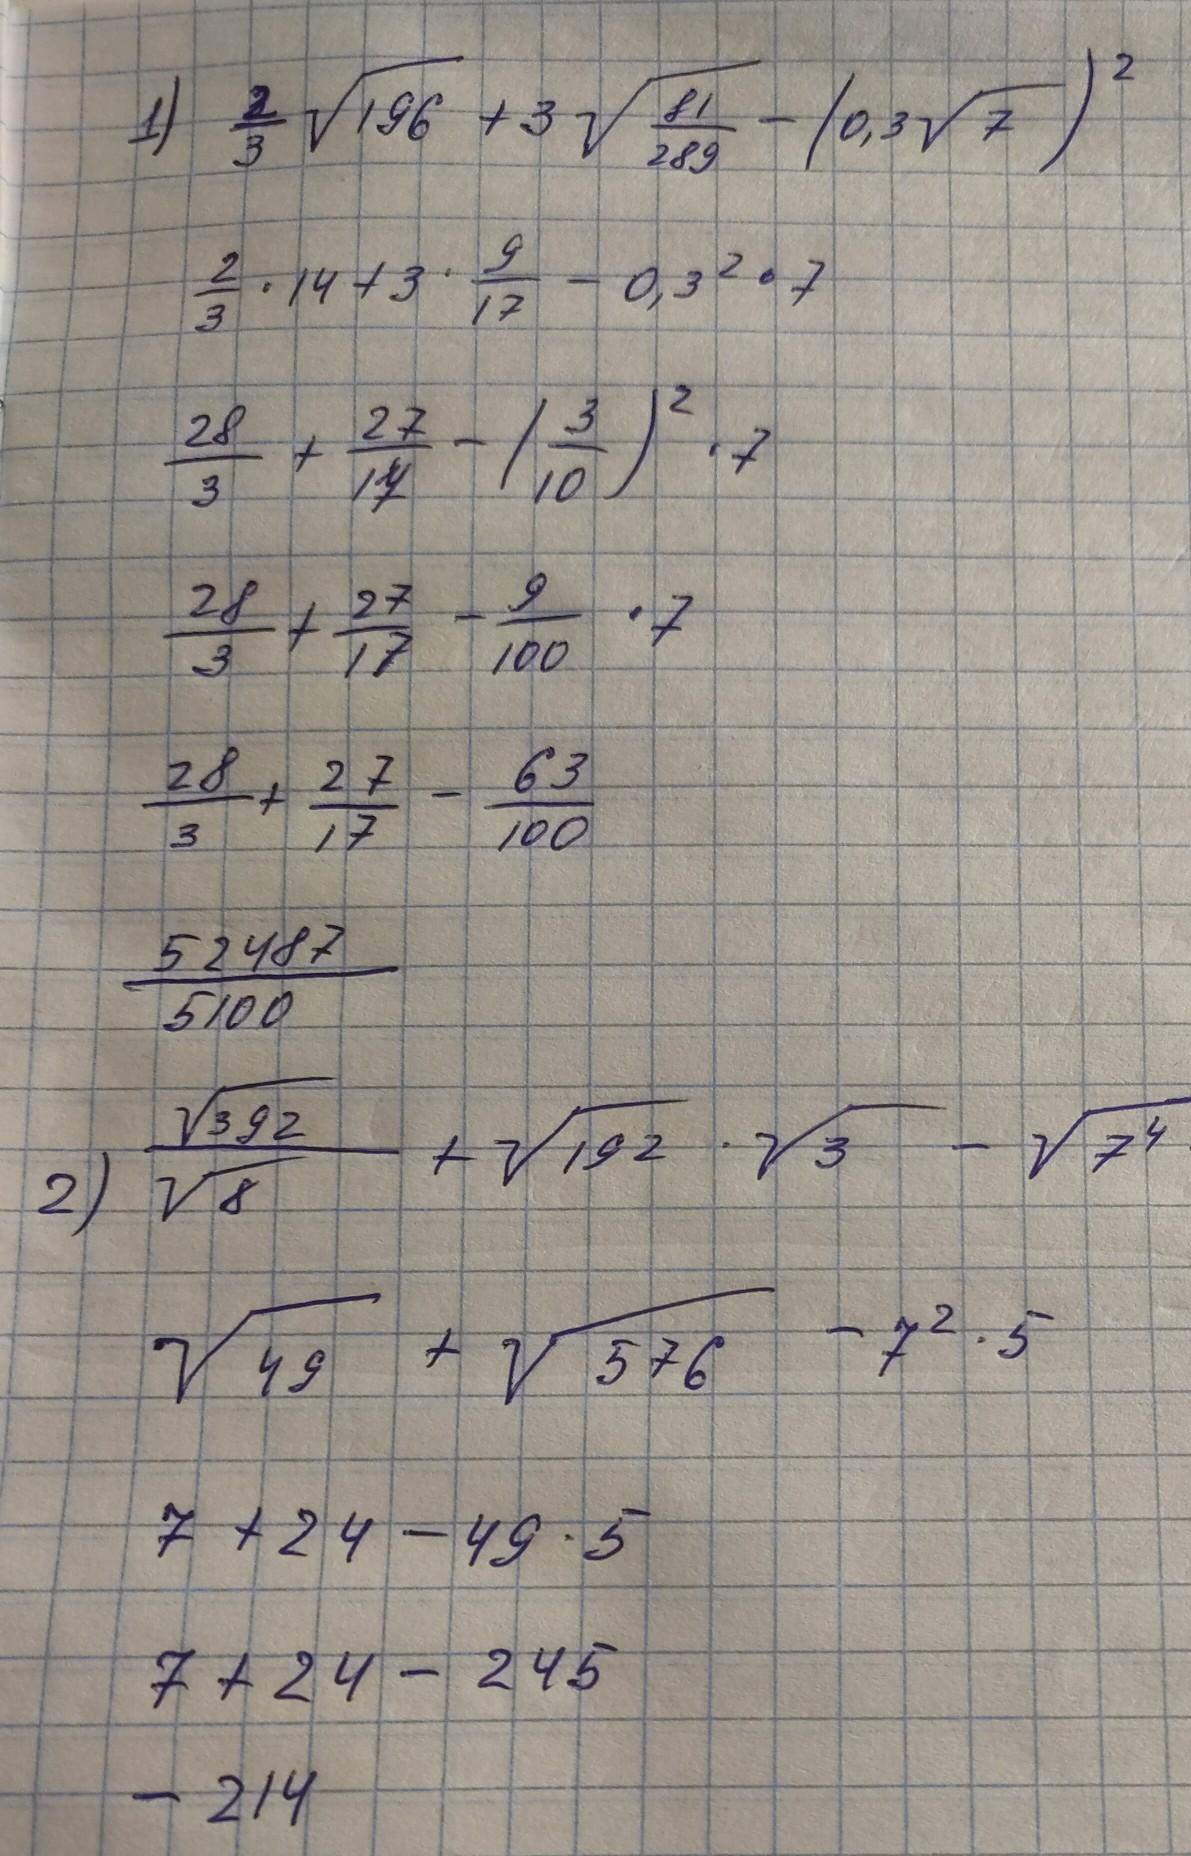 1) 2/3 √196 + 3 √(81/289) − (0,3√7)²
2/3 · 14 + 3 · 9/17 − 0,3² · 7
28/3 + 27/17 − (3/10)² · 7
28/3 + 27/17 − 9/100 · 7
28/3 + 27/17 − 63/100
52487/5100
2) √392/√8 + √192 · √3 − √7⁴
√49 + √576 − 7² · 5
7 + 24 − 49 · 5
7 + 24 − 245
− 214